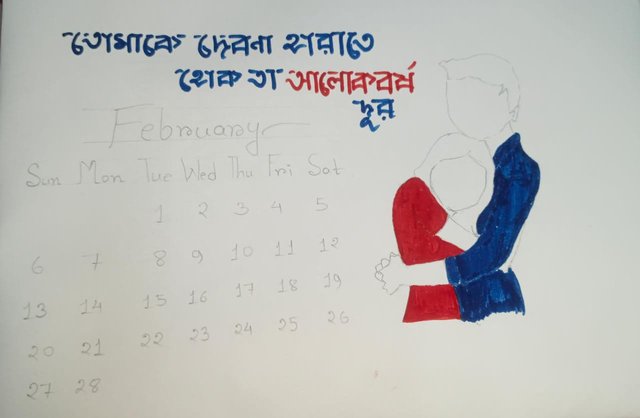 তোমাকে দেবনা হারাতে
হোক তা আলোকবর্ষ
দূর
February
Sun Mon Tue Wed Thu Fri Sat
1 2 3 4 5
6 7 8 9 10 11 12
13 14 15 16 17 18 19
20 21 22 23 24 25 26
27 28